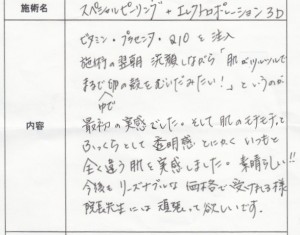 施術名
スペシャルピーリング + エレクトロポレーション3D
内容
ビタミン・プラセンタ・Q10を注入
施術の翌朝 洗顔しながら「肌がツルツルで
まるで卵の殻をむいたみたい!」というのが
ゆで
最初の実感でした。そして肌のモチモチして
ふっくらとして透明感とにかくいつもと
全く違う肌を実感しました。素晴らしい!!
今後もリーズナブルな価格で受けれる様
院長先生には頑張って欲しいです。